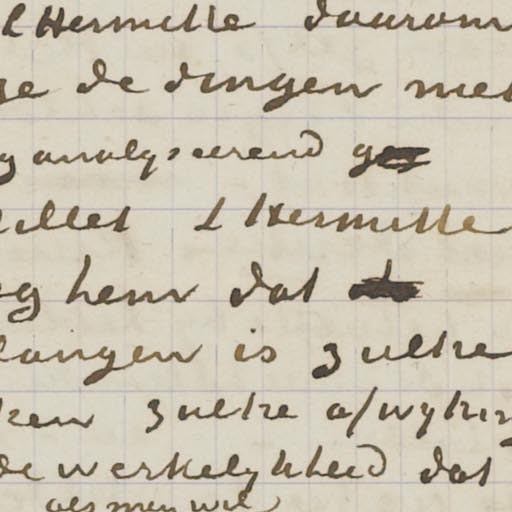 l'Hermitte daarom
de dingen met
analyseerend
Millet l'Hermitte
hem dat
langen is zulke
zulke afwykin
de werkelykheid dat
als men wil